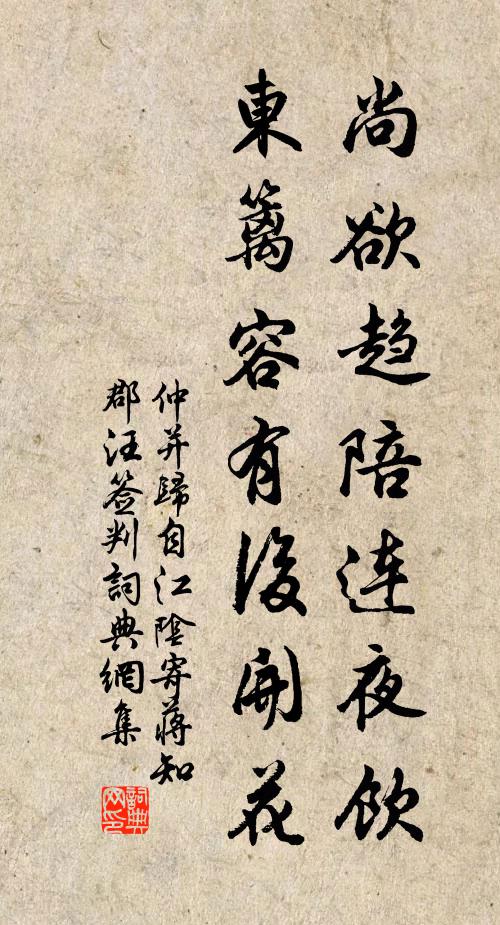 尚欲趋陪连夜饮
東籬容有後開花
仲并歸自江陰寄蔣知
郡汪签判詞典網集
詞典
网印